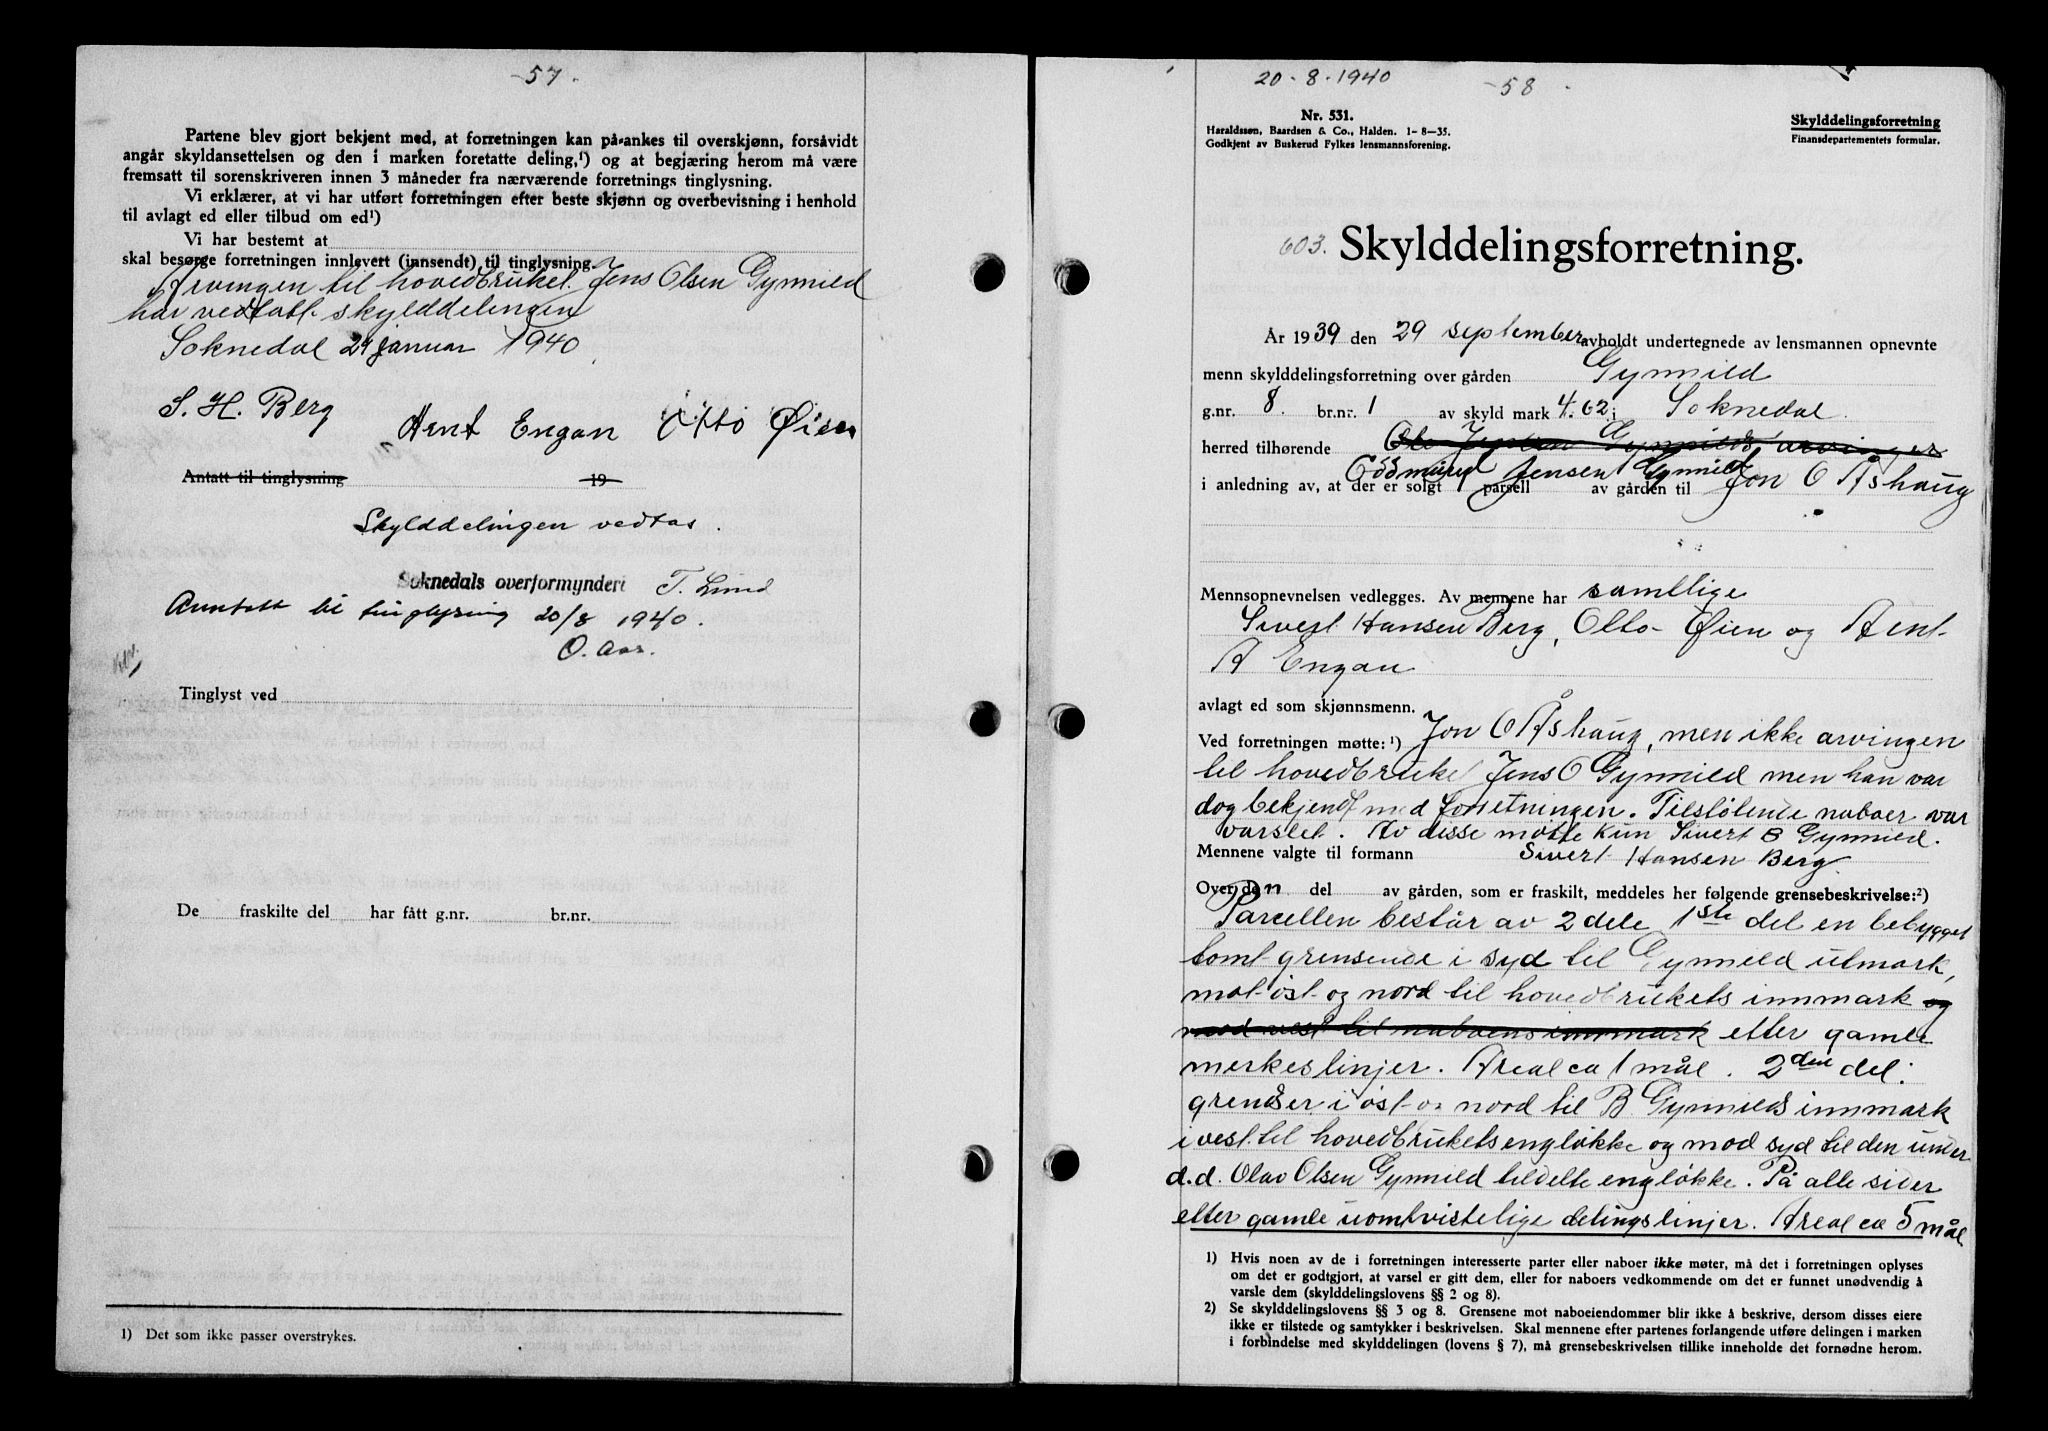 -57-
Partene blev gjort bekjent med, at forretningen kan på-ankes til overskjønn, forsåvidt
angår skyldansettelsen og den i marken foretatte deling,¹) og at begjæring herom må være
fremsatt til sorenskriveren innen 3 måneder fra nærværende forretnings tinglysning.
Vi erklærer, at vi har utført forretningen efter beste skjønn og overbevisning i henhold
til avlagt ed eller tilbud om ed¹)
Vi har bestemt at
skal besørge forretningen innlevert (innsendt) til tinglysning.
Arvingen til hovedbruket Jens Olsen Gynnild
har vedtatt skylddelingen
Soknedal 24 januar 1940
S. H. Berg
Arnt Engan Otto Øien
Antatt til tinglysning 19
Skylddelingen vedtas.
Soknedals overformynderi T. Lund
Anntatt til tinglysning 20/8 1940.
O. Aas.
Tinglyst ved
De fraskilte del har fått g.nr. br.nr.
1) Det som ikke passer overstrykes.
20-8-1940 -58-
Nr. 531.
Haraldssen, Baardsen & Co., Halden. 1-8-35.
Godkjent av Buskerud Fylkes lensmannsforening.
Skylddelingsforretning
Finansdepartementets formular.
603. Skylddelingsforretning.
År 1939 den 29 september avholdt undertegnede av lensmannen opnevnte
menn skylddelingsforretning over gården Gynnild
g.nr. 8. br.nr. 1 av skyld mark 4.62 i Soknedal.
herred tilhørende Ole Gynnilds arvinger
Gudmund Jensen Gynnild
i anledning av, at der er solgt 1 parsell av gården til Jon O Åshaug
Mennsopnevnelsen vedlegges. Av mennene har samtlige
Sivert Hansen Berg, Otto Øien og Arnt
A Engan
avlagt ed som skjønnsmenn.
Ved forretningen møtte:¹) Jon O Åshaug, men ikke arvingen
til hovedbruket Jens O Gynnild men han var
dog bekjendt med forretningen. Tilstøtende naboer var
varslet. Av disse møtte kun Sivert B Gynnild.
Mennene valgte til formann Sivert Hansen Berg
Over den del av gården, som er fraskilt, meddeles her følgende grensebeskrivelse:²)
Parcellen består av 2 dele 1ste del en bebygget
tomt grensende i syd til Gynnild utmark,
mot øst og nord til hovedbrukets innmark og
mod vest til naboens innmark etter gamle
merkeslinjer. Areal ca 1 mål. 2den del:
grendser i øst og nord til B Gynnilds innmark
i vest til hovedbrukets engløkke og mod syd til den under
d.d. Olav Olsen Gynnild tildelte engløkke. På alle sider
etter gamle uomtvistelige delingslinjer. Areal ca 5 mål
1) Hvis noen av de i forretningen interesserte parter eller naboer ikke møter, må det i forretningen oplyses
om det er godtgjort, at varsel er gitt dem, eller for naboers vedkommende om det er funnet unødvendig å
varsle dem (skylddelingslovens §§ 2 og 8).
2) Se skylddelingslovens §§ 3 og 8. Grensene mot naboeiendommer blir ikke å beskrive, dersom disses eiere
ikke er tilstede og samtykker i beskrivelsen. Skal mennene efter partenes forlangende utføre delingen i marken
i forbindelse med skylddelingen (lovens § 7), må grensebeskrivelsen tillike inneholde det fornødne herom.